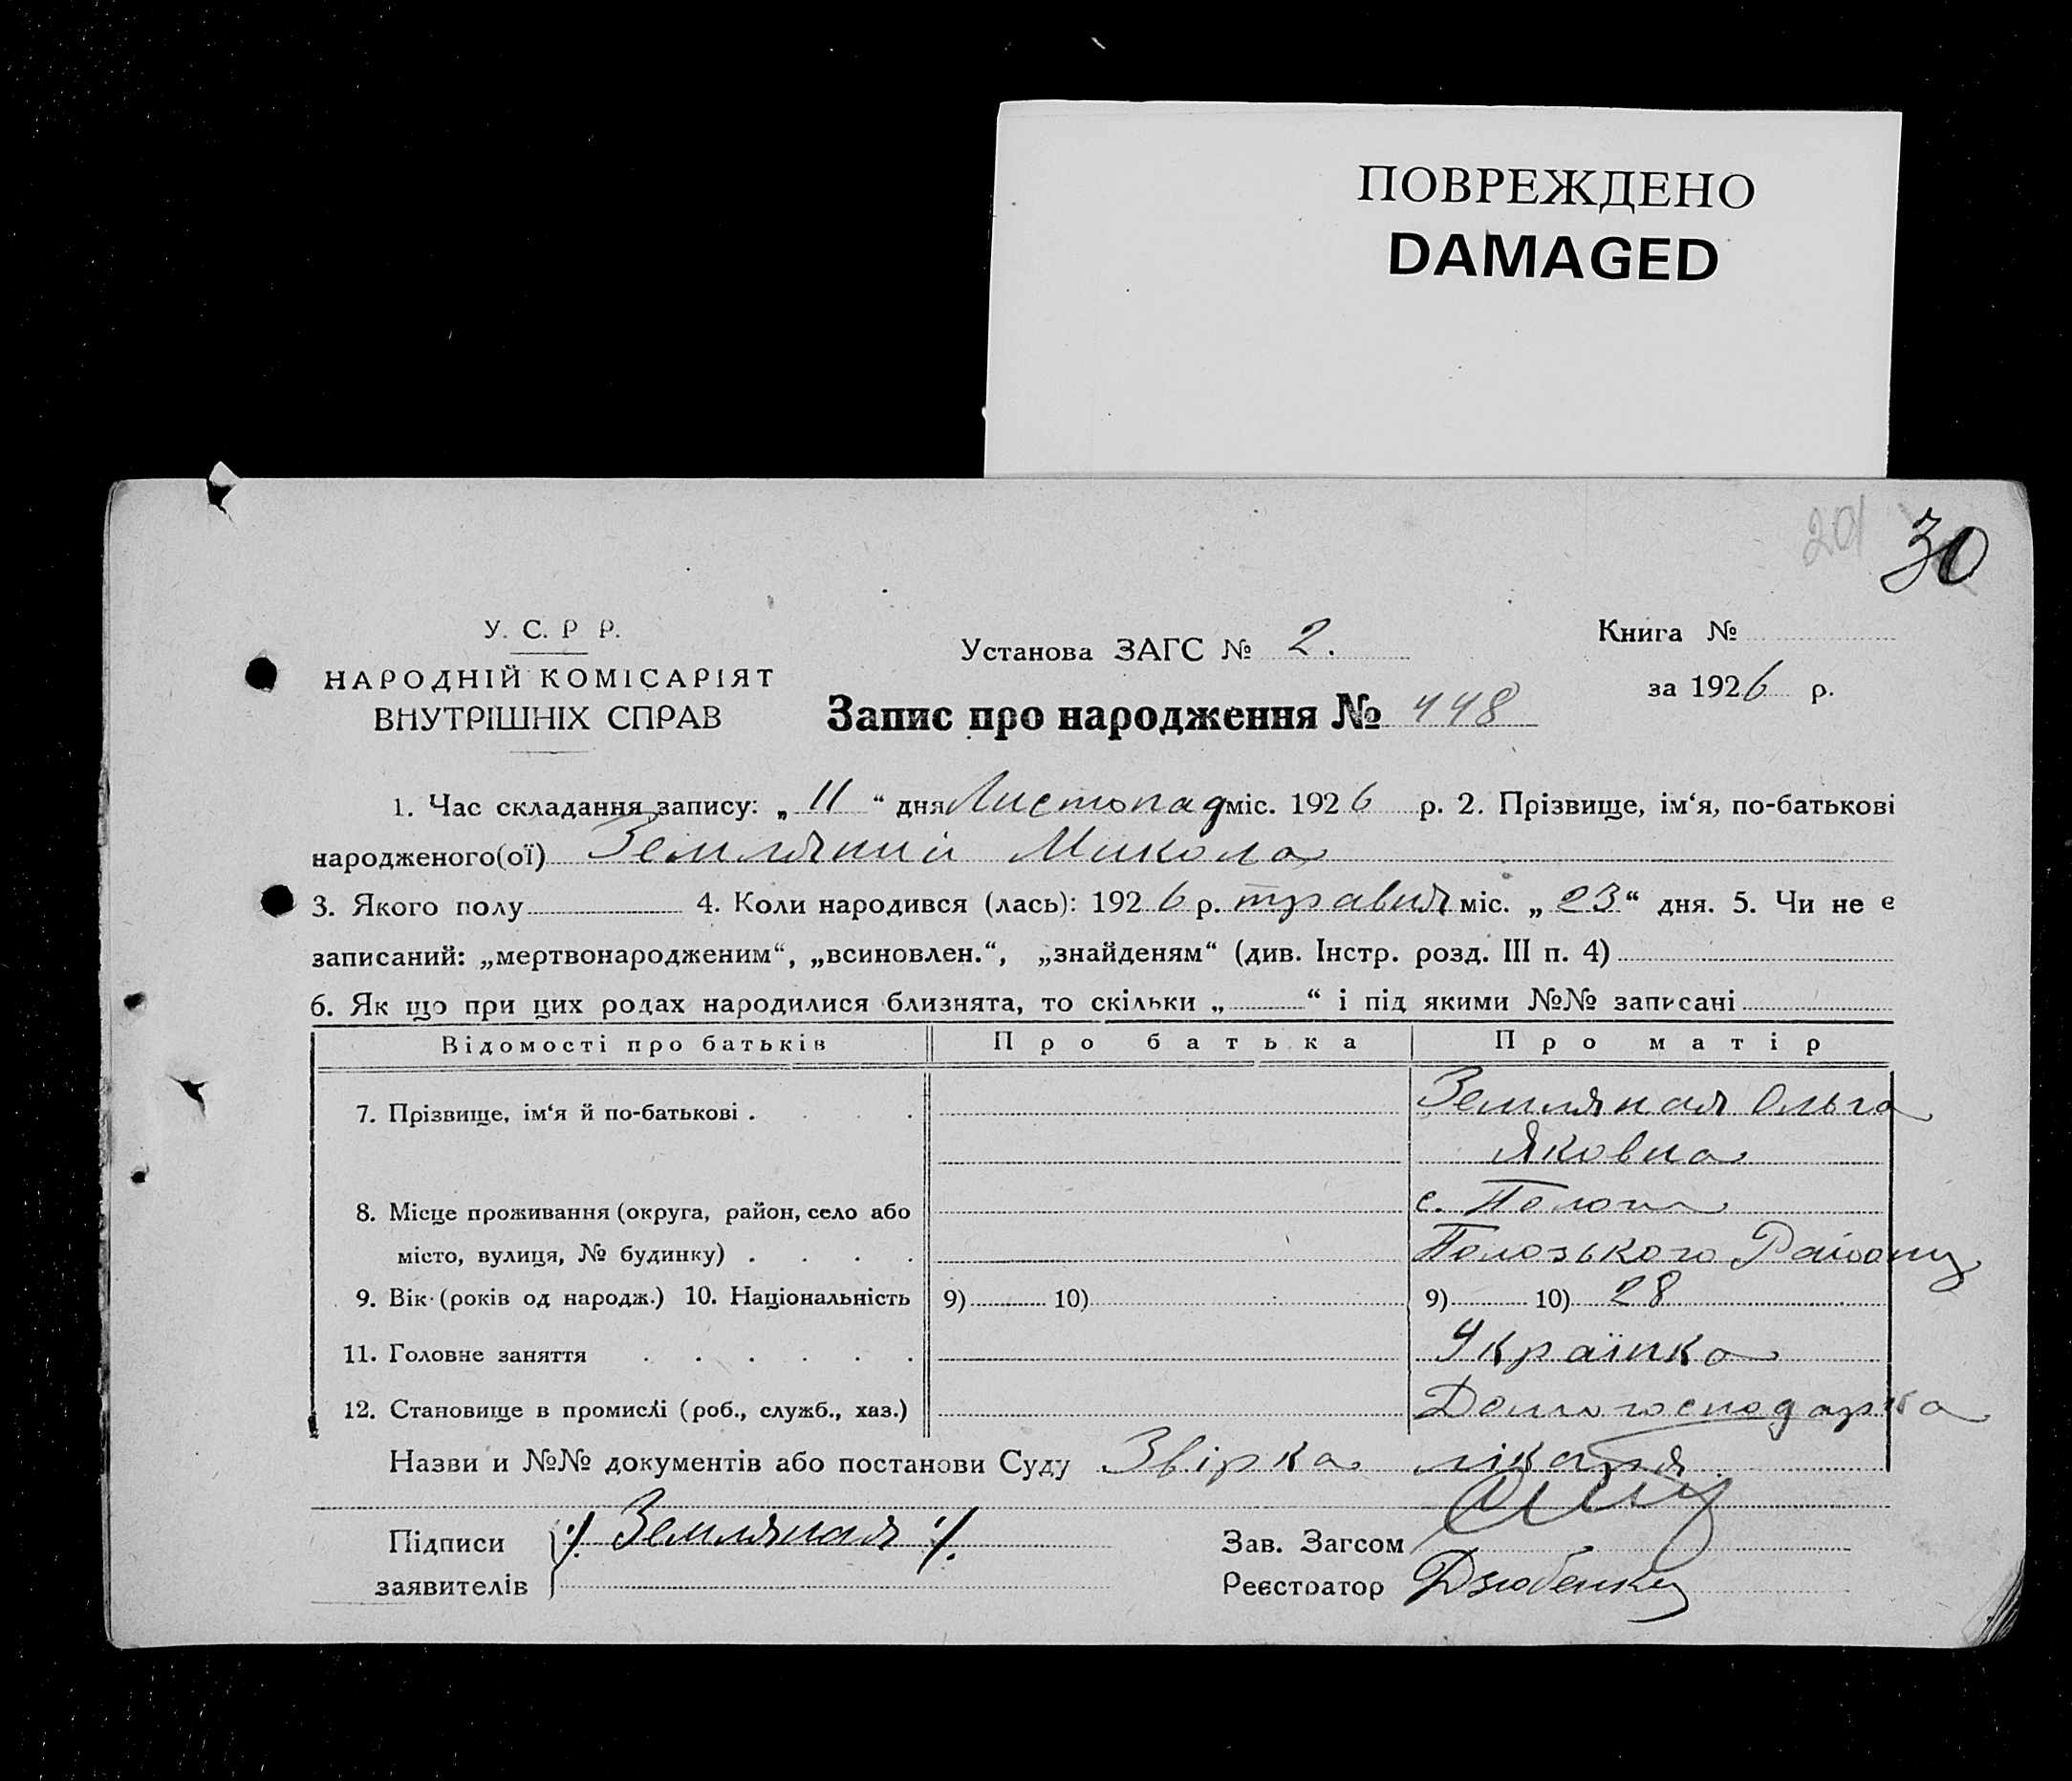 ПОВРЕЖДЕНО
DAMAGED
201 30
У. С. Р Р.
НАРОДНІЙ КОМІСАРІЯТ
ВНУТРІШНІХ СПРАВ
Установа ЗАГС № 2.
Книга №
за 1926 р.
Запис про народження № 448
1. Час складання запису: „ 11 “ дня Листопад міс. 1926 р. 2. Прізвище, ім‘я, по-батькові
народженого(ої) Земляний Микола
3. Якого полу 4. Коли народився (лась): 1926 р. травня міс. „ 23 “ дня. 5. Чи не є
записаний: „мертвонародженим“, „всиновлен.“, „знайденям“ (див. Інстр. розд. III п. 4)
6. Як що при цих родах народилися близнята, то скільки „ “ і під якими №№ записані
Відомості про батьків Про батька Про матір
7. Прізвище, ім‘я й по-батькові . . . . Земляная Ольга
Яковна
8. Місце проживання (округа, район, село або с. Пологи
місто, вулиця, № будинку) . . . . Положського Району
9. Вік (років од народж.) 10. Національність 9) 10) 9) 10) 28
11. Головне заняття . . . . . . Українка
12. Становище в промислі (роб., служб., хаз.) Домогосподарка
Назви и №№ документів або постанови Суду Звірка лікаря
Підписи ./. Земляная ./. Зав. Загсом
заявителів Реєстратор Дзюбенко